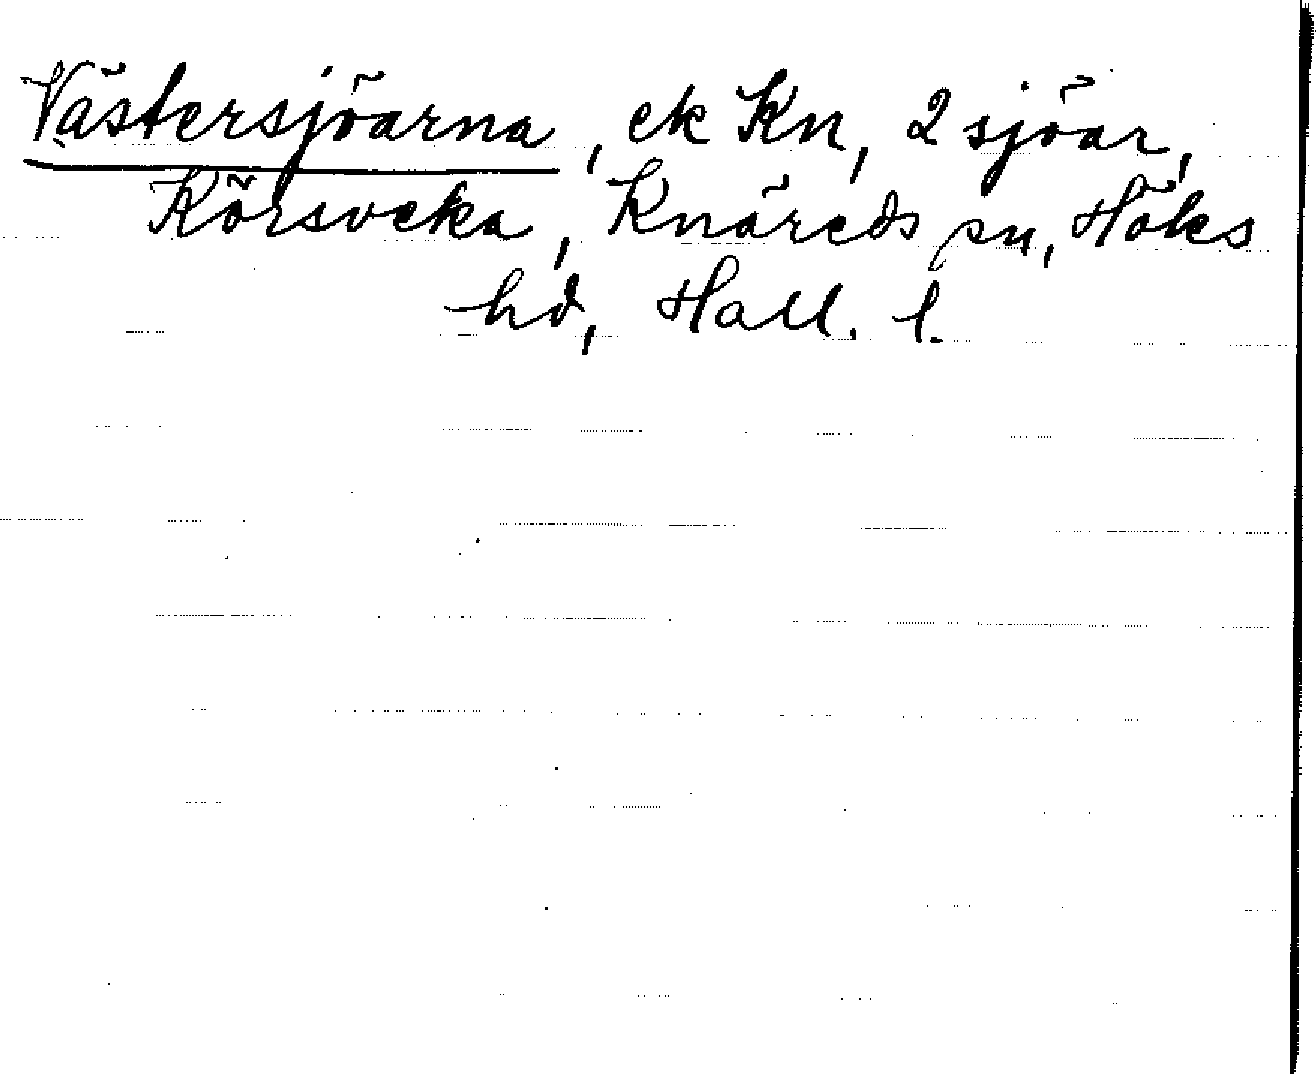 Västersjöarna, ek Kn, 2 sjöar,
Körsveka, Knäreds sn, Höks
hd, Hall. l.